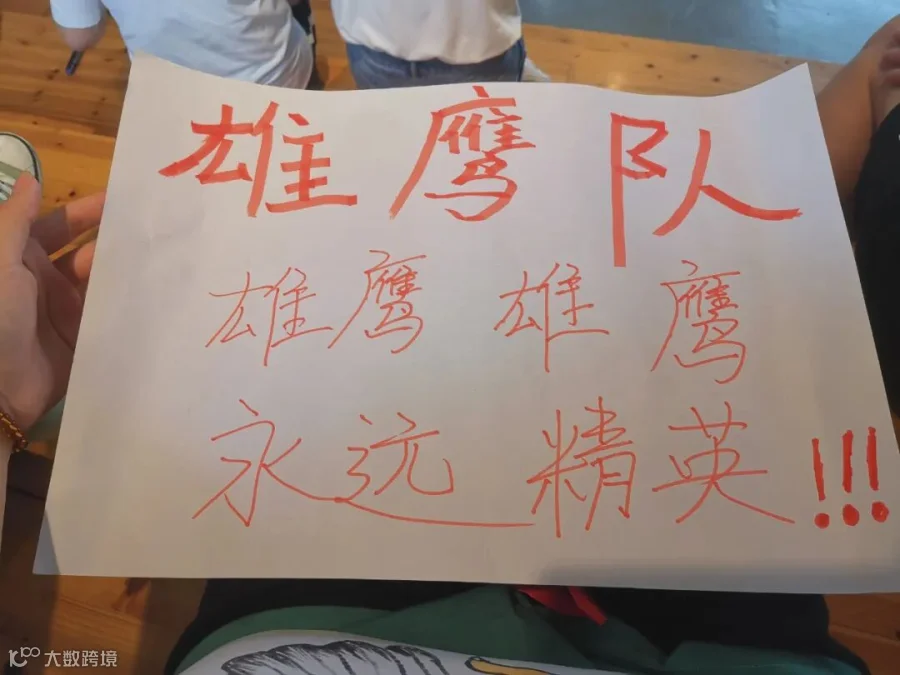 雄鹰队
雄鹰 雄鹰
永远精英!!!
大数跨境